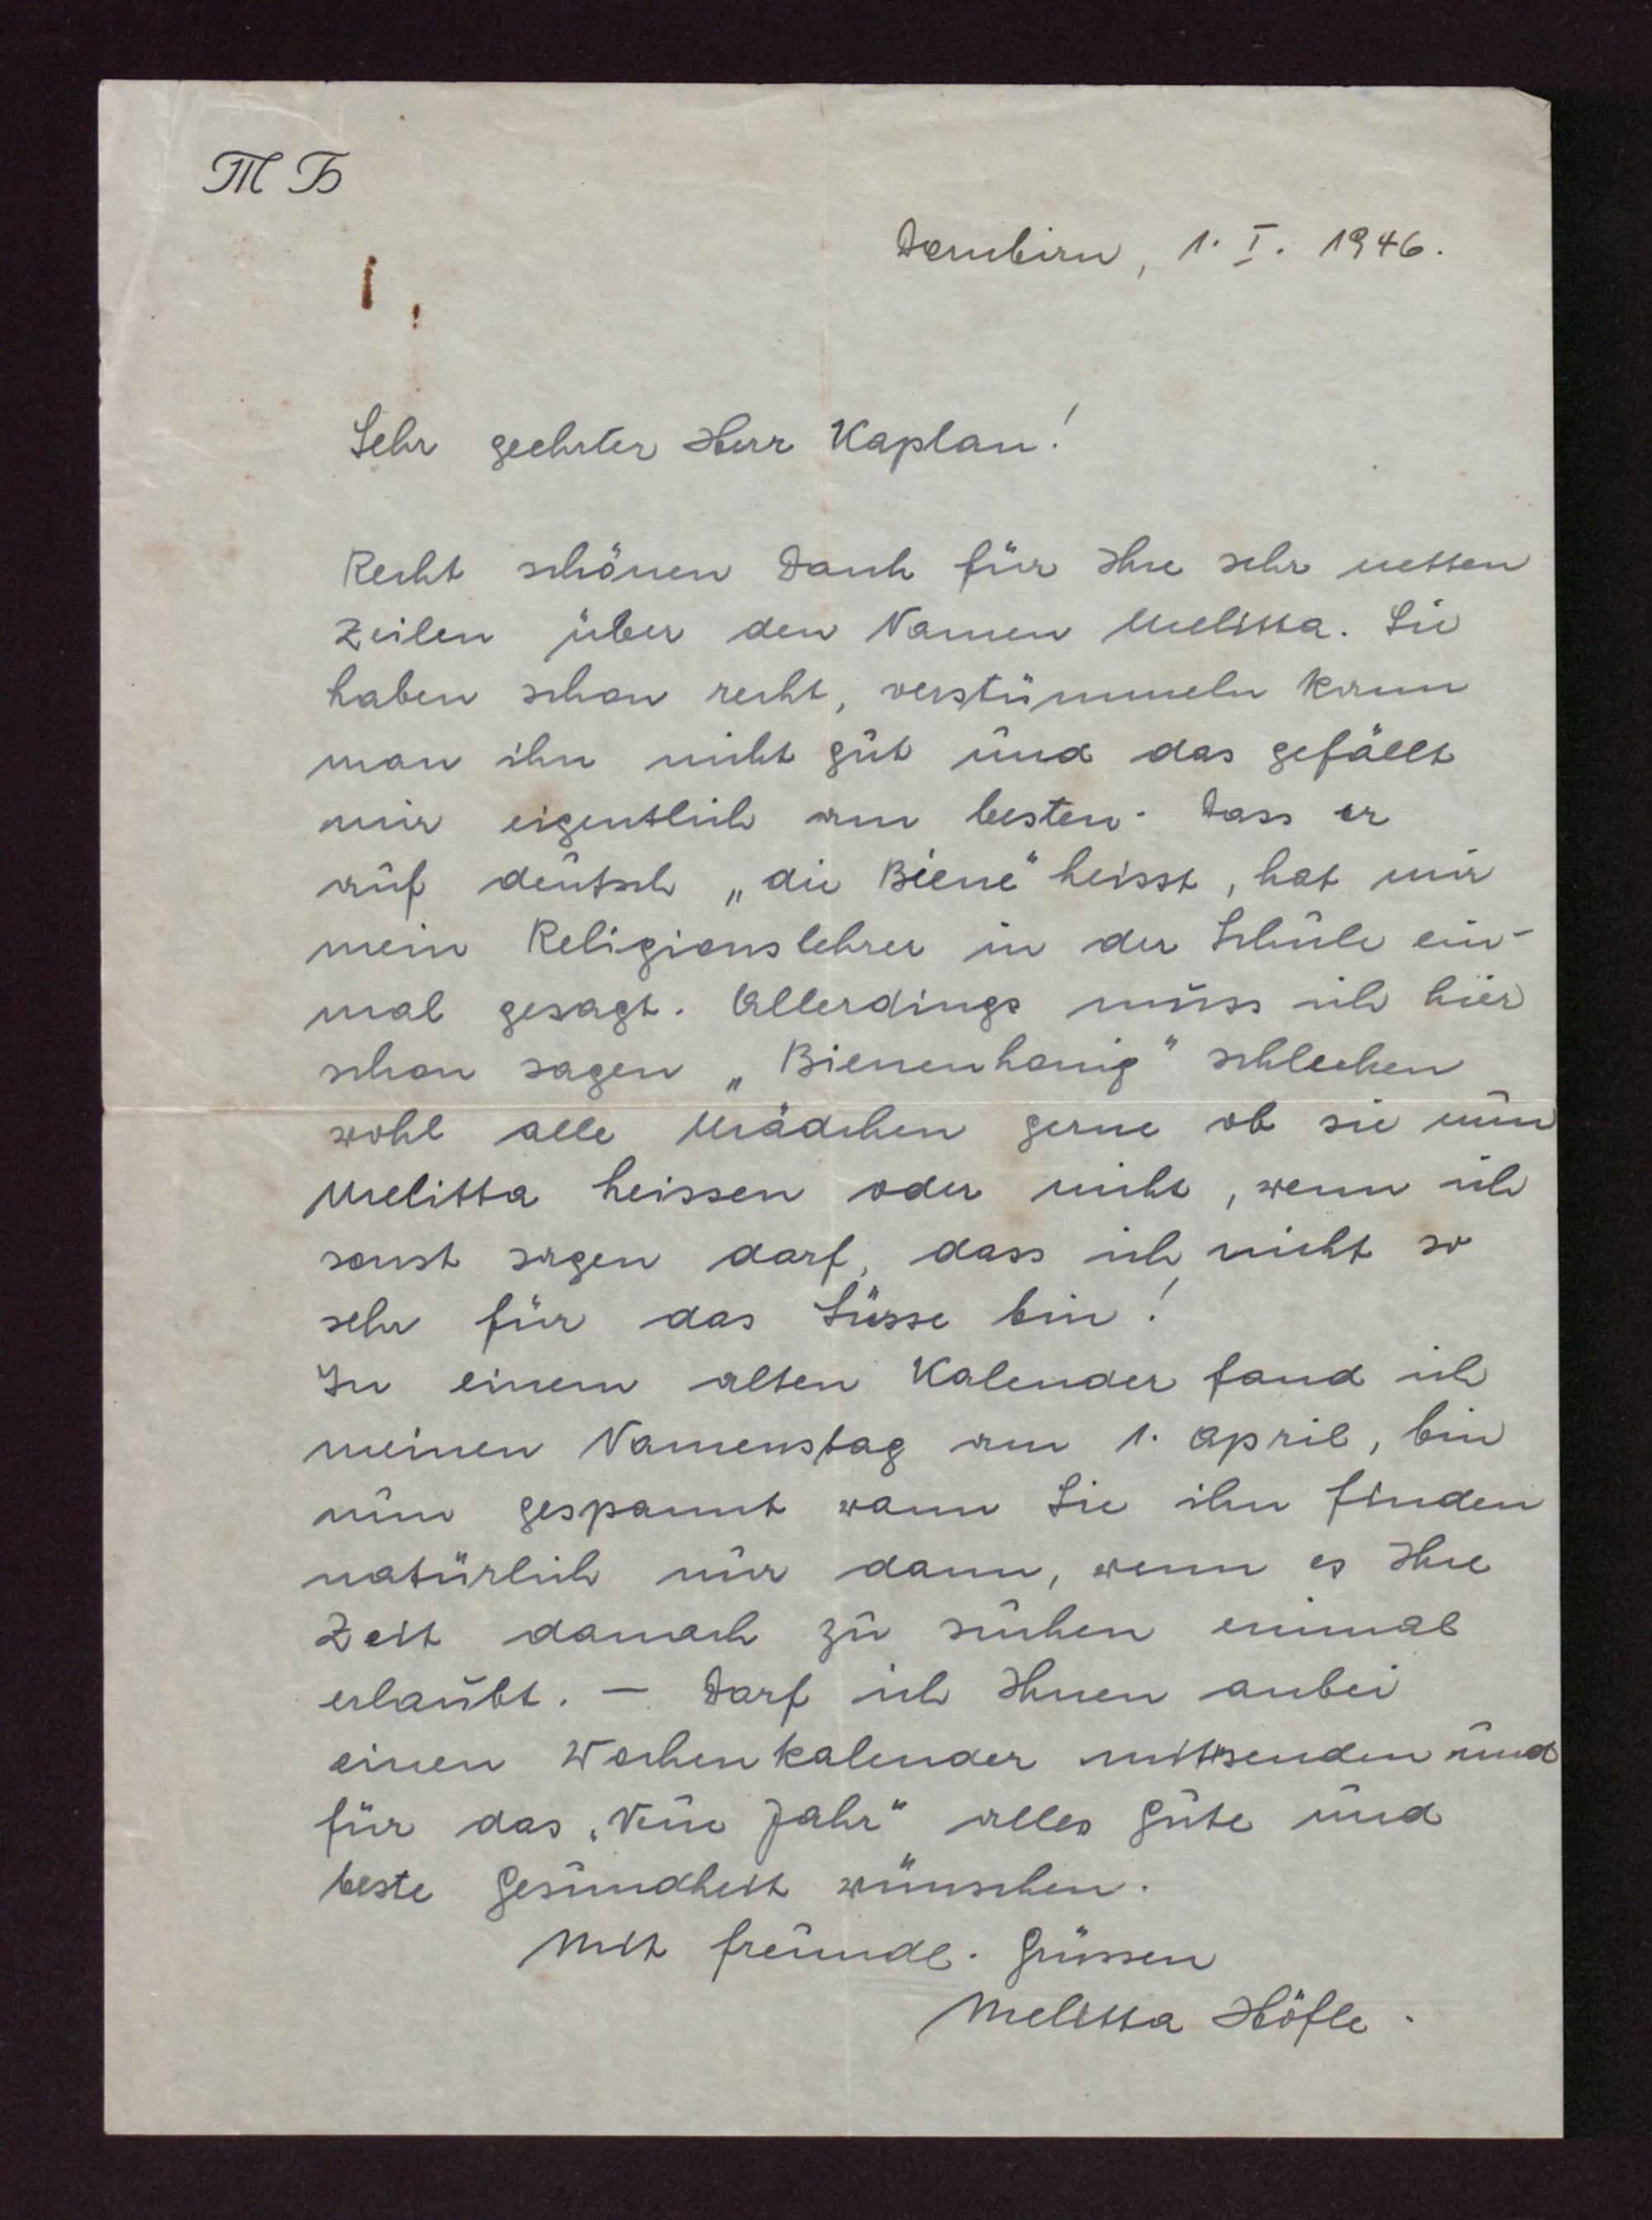 TB
Dornbirn, 1. I. 1946.
Sehr geehrter Herr Kaplan!
Recht schönen Dank für Ihre sehr netten
Zeilen über den Namen Melitta. Sie
haben schon recht, verstümmeln kann
man ihn nicht gut und das gefällt
mir eigentlich am besten. Dass er
auf deutsch „die Biene" heisst, hat mir
mein Religionslehrer in der Schule ein-
mal gesagt. Allerdings muss ich hier
schon sagen „Bienenhonig" schlecken
wohl alle Mädchen gerne ob sie nun
Melitta heissen oder nicht, wenn ich
sonst sagen darf, dass ich nicht so
sehr für das Süsse bin!
In einem alten Kalender fand ich
meinen Namenstag am 1. April, bin
nun gespannt wann Sie ihn finden
natürlich nur dann, wenn es Ihre
Zeit danach zu suchen einmal
erlaubt. — Darf ich Ihnen anbei
einen Wochenkalender mitsenden und
für das „Neue Jahr" alles Gute und
beste Gesundheit wünschen.
Mit freundl. Grüssen
Melitta Höfle.